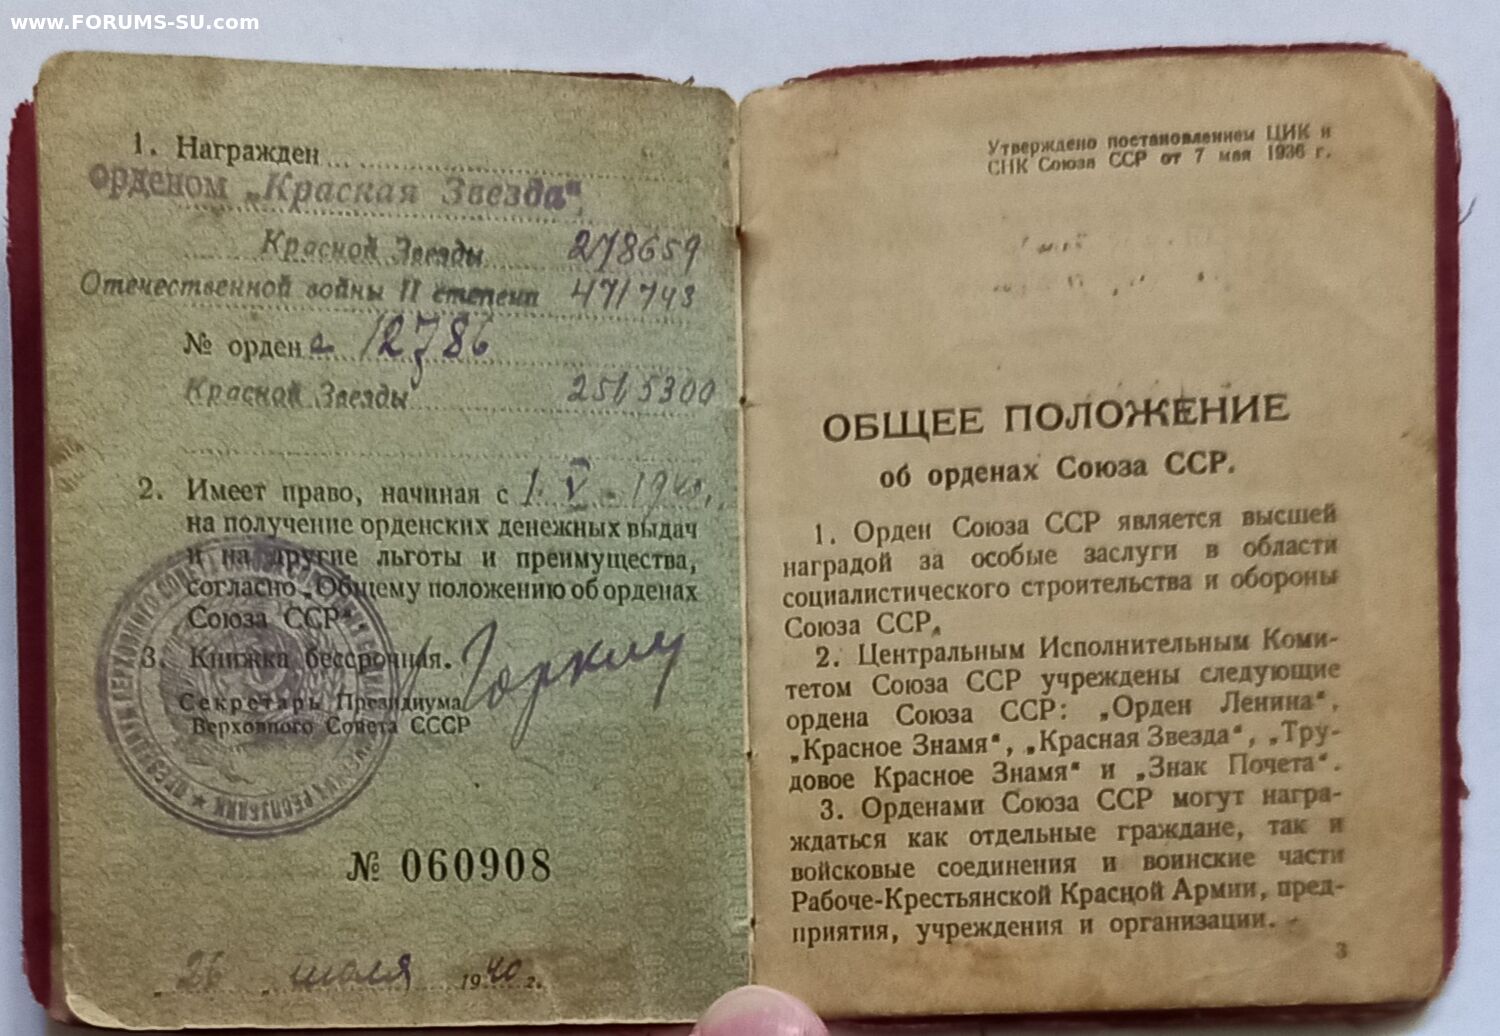 www.FORUMS-SU.com
1. Награжден
орденом „Красная Звезда“
Красной Звезды 278659
Отечественной войны II степени 471743
№ ордена 12786
Красной Звезды 2515300
2. Имеет право, начиная с 1. V - 1940 г.
на получение орденских денежных выдач
и на другие льготы и преимущества,
согласно „Общему положению об орденах
Союза ССР“.
3. Книжка бессрочная.
Секретарь Президиума
Верховного Совета СССР
Горкин
№ 060908
„26„ июля 1940 г.
Утверждено постановлением ЦИК и
СНК Союза ССР от 7 мая 1936 г.
ОБЩЕЕ ПОЛОЖЕНИЕ
об орденах Союза ССР.
1. Орден Союза ССР является высшей
наградой за особые заслуги в области
социалистического строительства и обороны
Союза ССР.
2. Центральным Исполнительным Коми-
тетом Союза ССР учреждены следующие
ордена Союза ССР: „Орден Ленина“,
„Красное Знамя“, „Красная Звезда“, „Тру-
довое Красное Знамя“ и „Знак Почета“.
3. Орденами Союза ССР могут награ-
ждаться как отдельные граждане, так и
войсковые соединения и воинские части
Рабоче-Крестьянской Красной Армии, пред-
приятия, учреждения и организации.
3